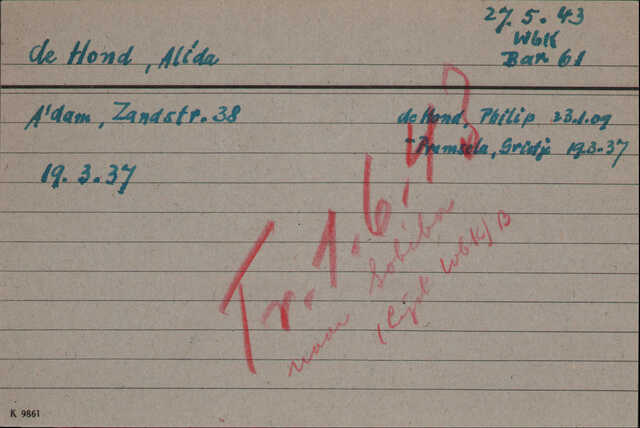 27.5.43
WbK
Bar 61
de Hond, Alida
A'dam, Zandstr. 38
de Hond, Philip 23.1.09
-Premsela, Grietje 19.3.37
19.3.37
Tr. 1.6.43
naar Sobibor
(lijst WbK) B
K 9861